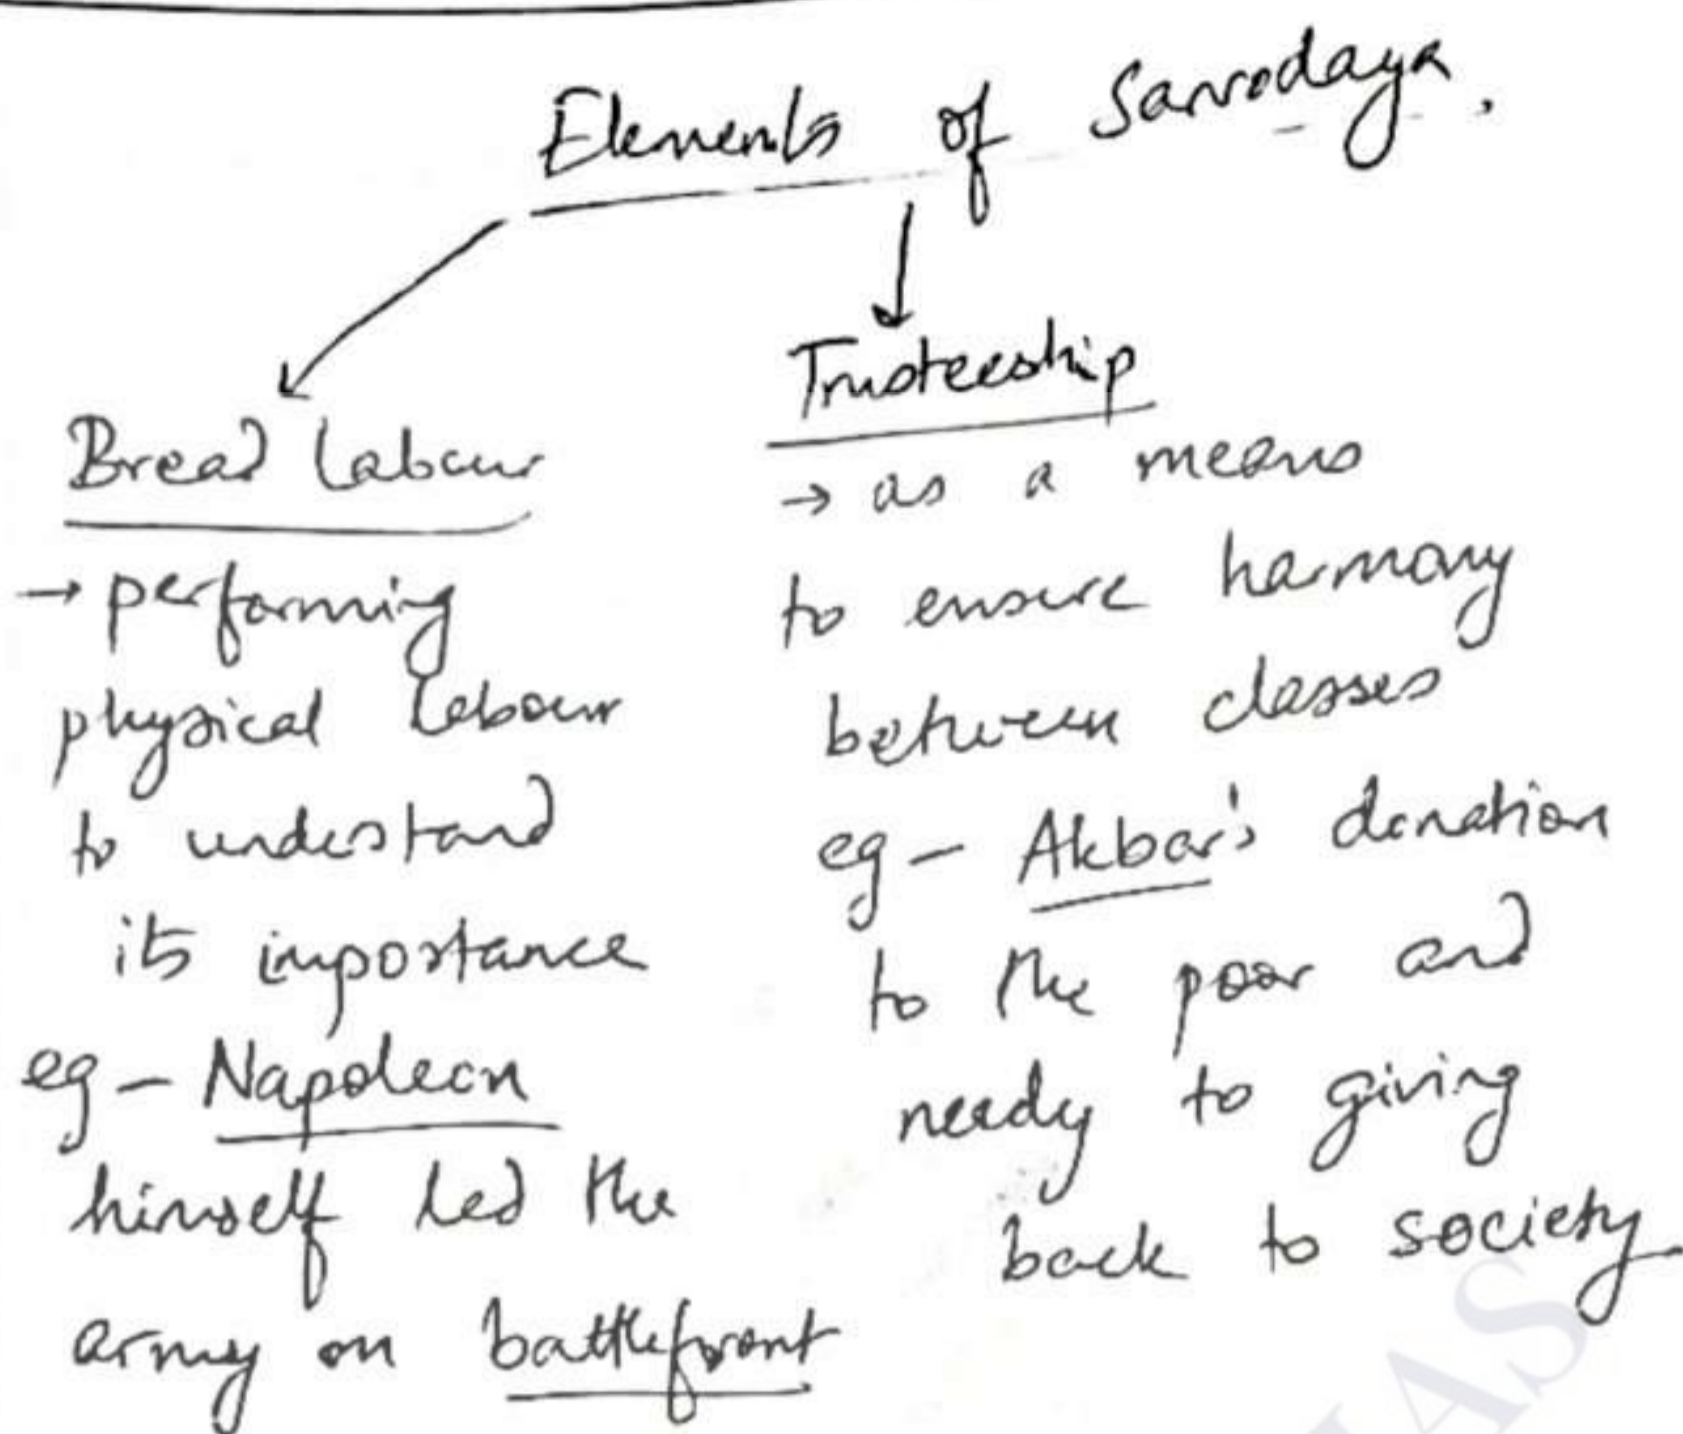 Elements of Sarvodaya.
Bread Labour
→ performing
physical labour
to understand
its importance
eg - Napoleon
himself led the
army on battlefront
Trusteeship
→ as a means
to ensure harmony
between classes
eg - Akbar's donation
to the poor and
needy to giving
back to society
IAS